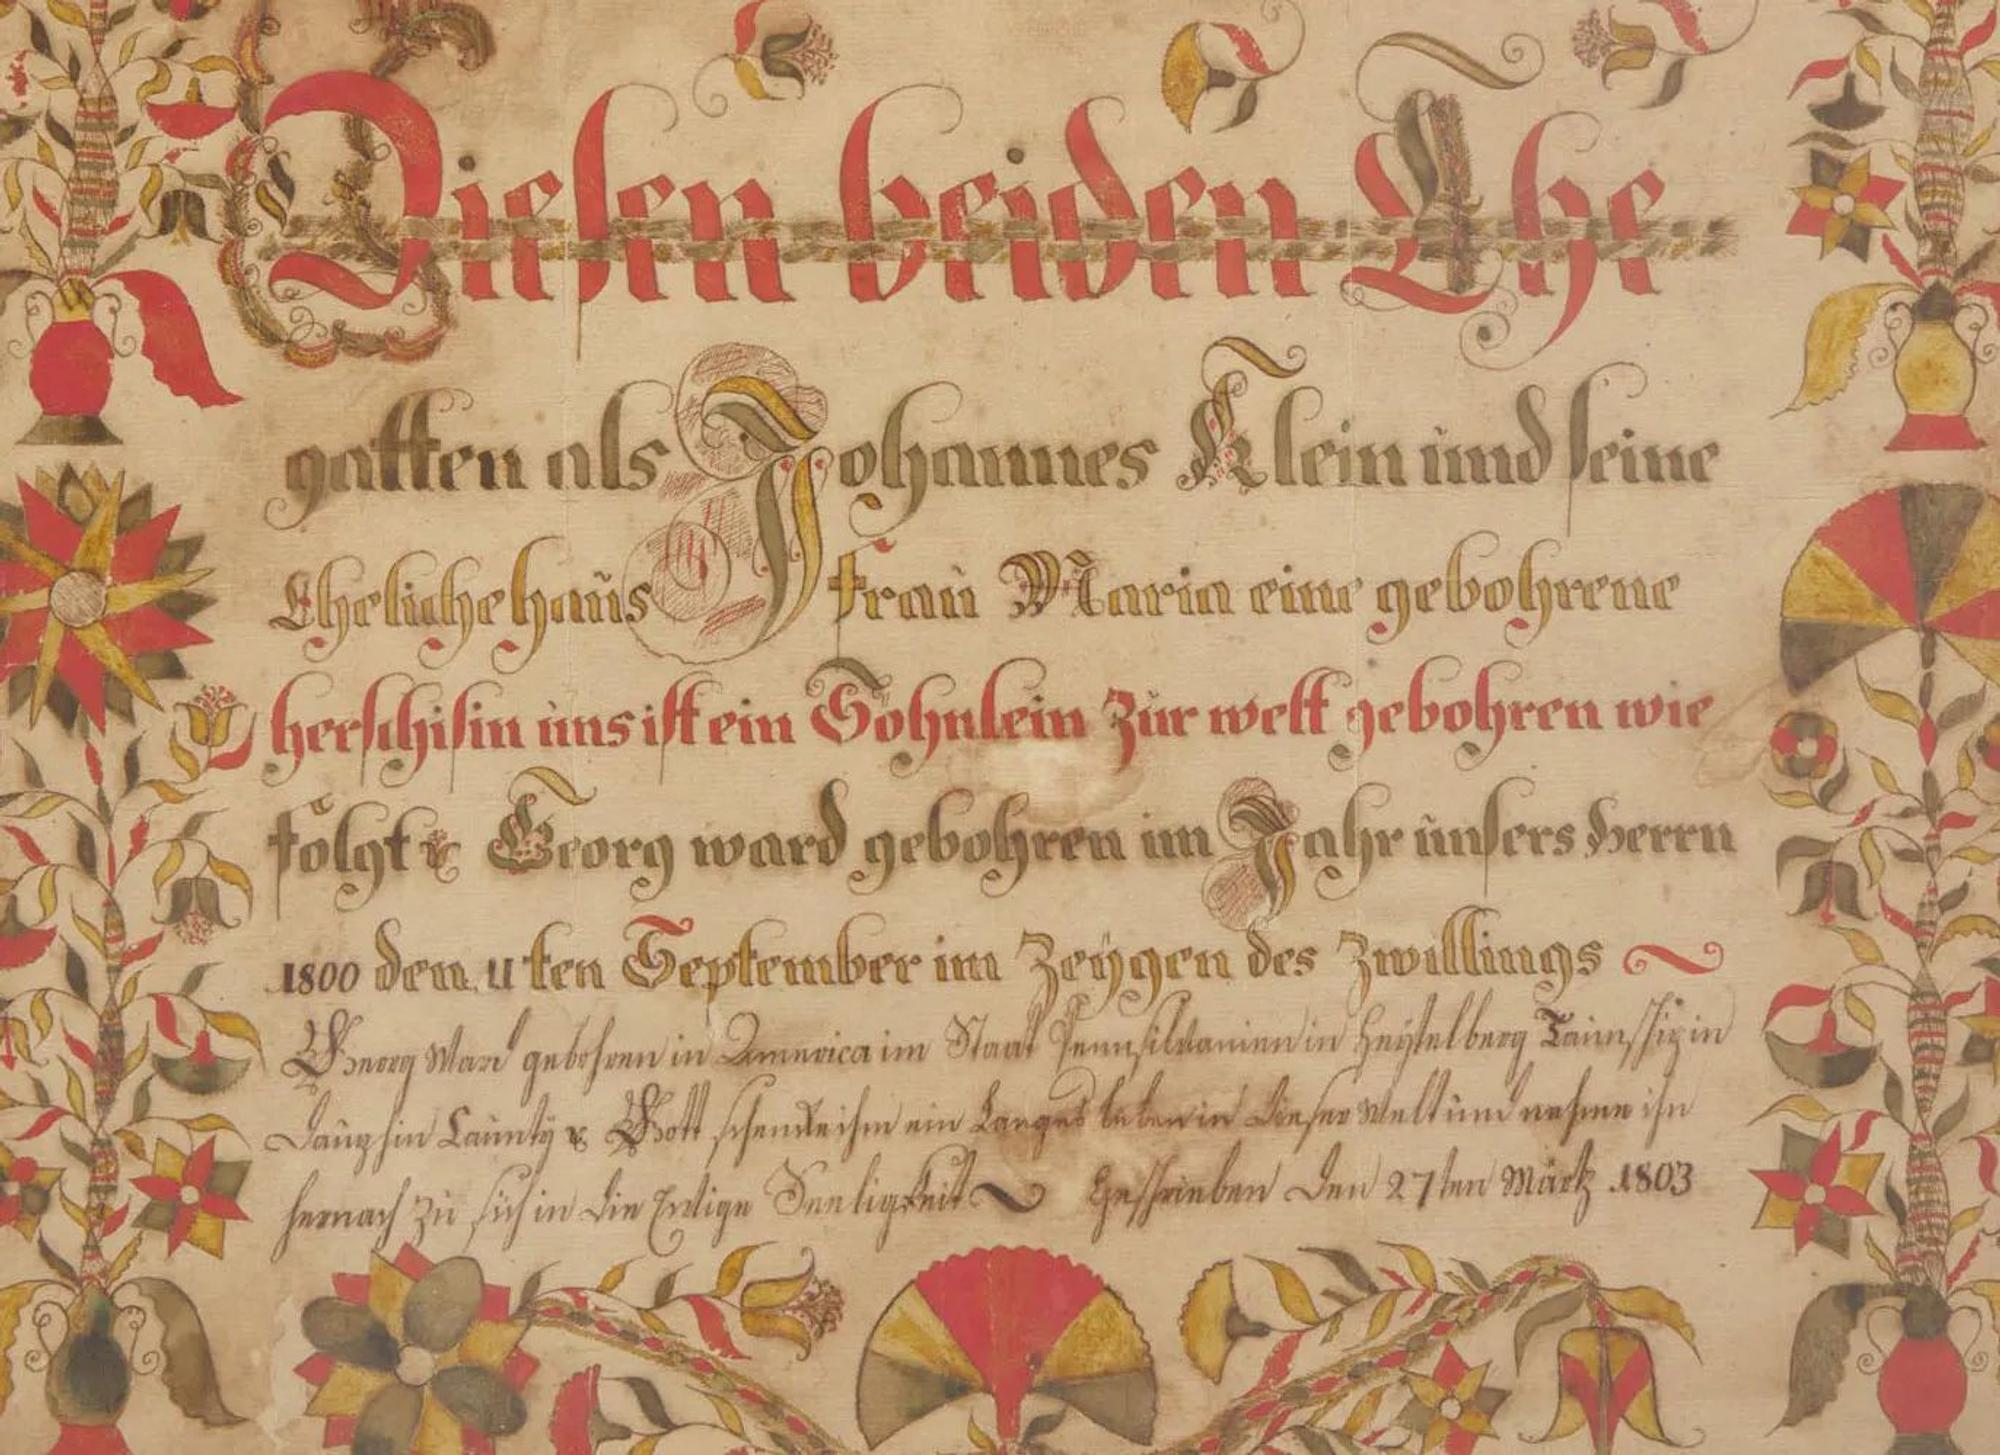 Diesen beiden Ehe
gatten als Johannes Klein ùnd seine
Eheliche haùs fraù Maria eine gebohrene
herschisin ùns ist ein Söhnlein Zùr welt gebohren wie
folgt Georg ward gebohren im Jahr ùnsers Herrn
1800 den 11ten September im Zeÿgen des Zwillings
Georg Ward gebohren in America im Staat Pennsilvanien in Heÿdelberg Taùnschip in
Daùphin Caùntÿ Gott schencke ihm ein Langes leben in dieser Welt ùnd nehme ihn
hernach Zù sich in die Ewige Seeligkeit Geschrieben den 27ten Märtz 1803